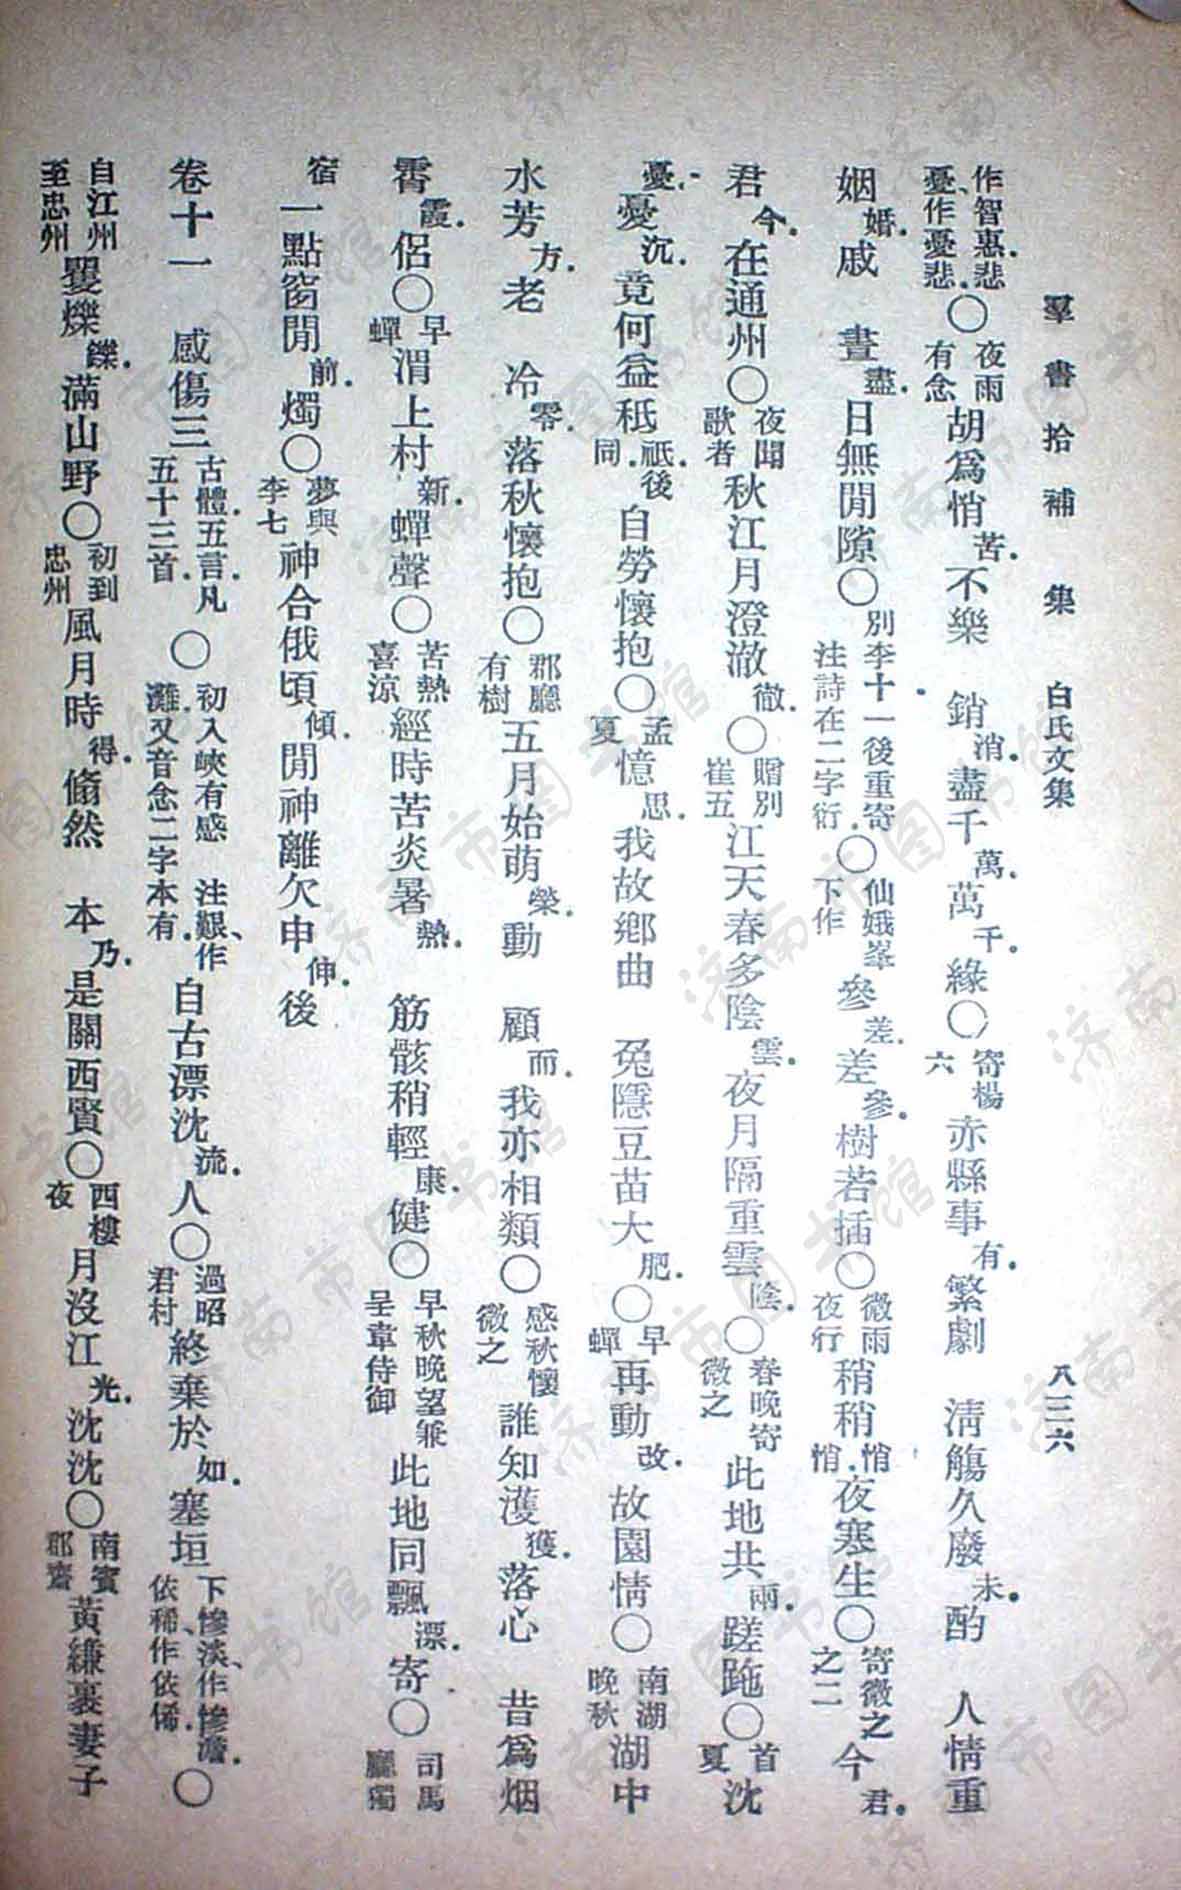 羣書拾補　集　白氏文集　八三六
作智惠悲憂、作憂悲○夜雨有念胡爲悄苦不樂　銷消盡千萬萬千緣○寄楊六赤縣事有繁劇　淸觴久廢未酌　人情重
姻婚戚　晝盡日無閒隙○別李十一後重寄注詩在二字衍○仙娥峯下作參差差參樹若插○微雨夜行稍稍悄悄夜寒生○寄微之之二今君
君今在通州○夜聞歌者秋江月澄澈徹○贈別崔五江天春多陰雲夜月隔重雲陰○春晚寄微之此地共兩蹉跎○首夏沈
憂憂沉竟何益秖祇後同自勞懷抱○孟夏憶思我故鄉曲　兔隱豆苗大肥○早蟬再動改故園情○南湖晚秋湖中
水芳方老　冷零落秋懷抱○郡廳有樹五月始萌榮動　顧而我亦相類○感秋懷微之誰知濩獲落心　昔爲烟
霄霞侶○早蟬渭上村新蟬聲○苦熱喜涼經時苦炎暑熱　筋骸稍輕康健○早秋晚望兼呈韋侍御此地同飄漂寄○司馬廳獨
宿一點窗閒前燭○夢與李七神合俄頃傾閒神離欠申伸後
卷十一　感傷三古體五言凡五十三首○初入峽有感　注艱、作灘又音念二字本有自古漂沈流人○過昭君村終棄於如塞垣下慘淡、作慘澹依稀、作依俙○
自江州至忠州矍爍鑠滿山野○初到忠州風月時得翛然　本乃是關西賢○西樓夜月沒江光沈沈○南賓郡齋黃縑裹妻子